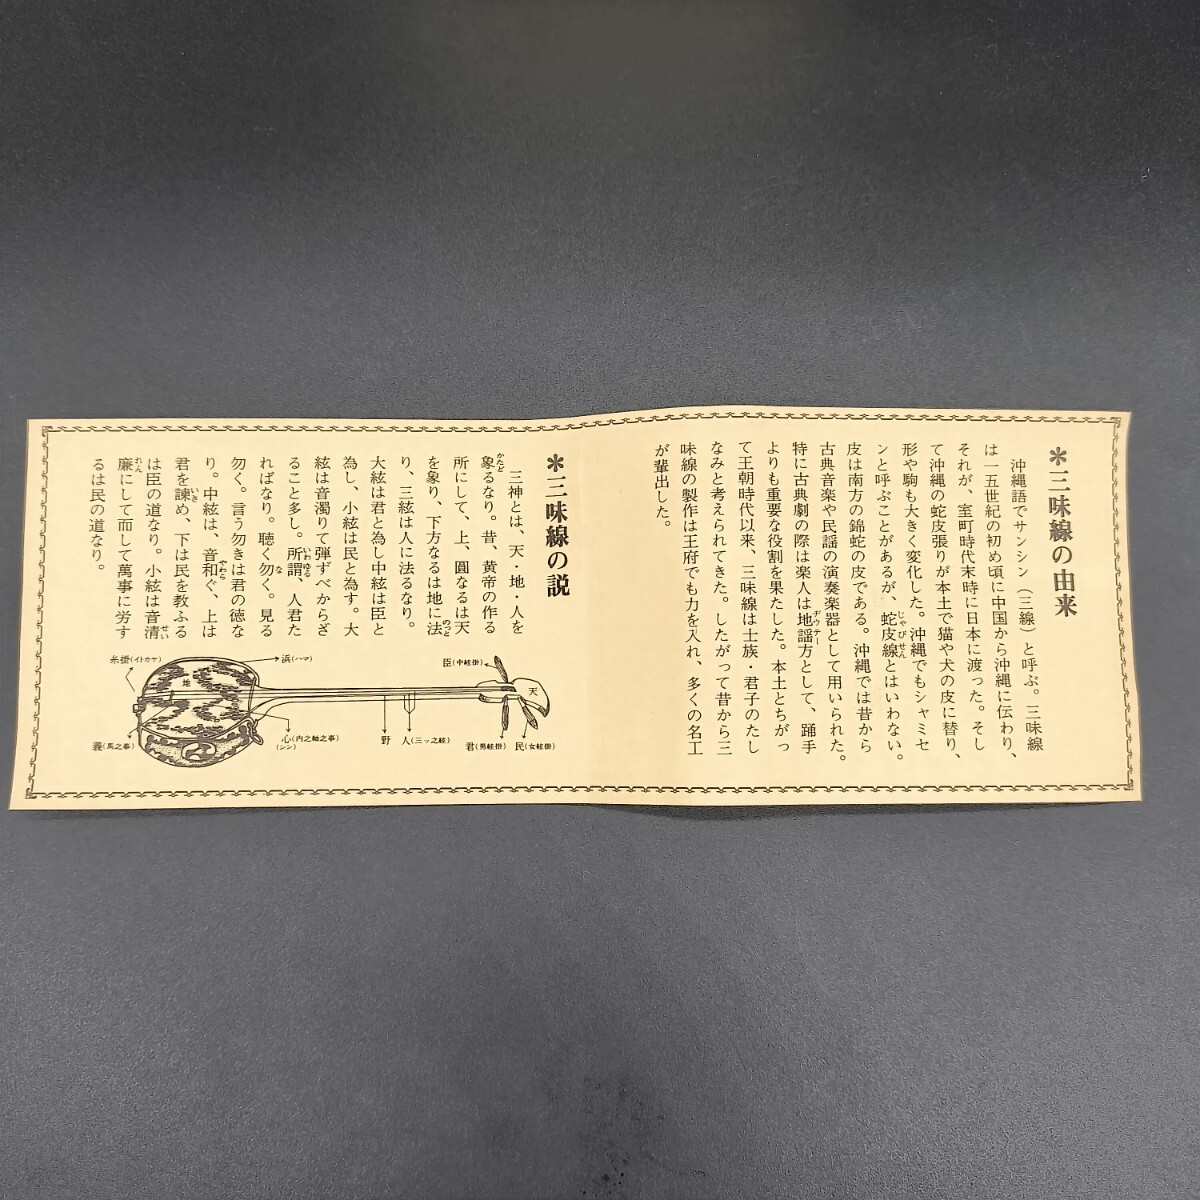 ＊三味線の由来
沖縄語でサンシン（三線）と呼ぶ。三味線
は一五世紀の初め頃に中国から沖縄に伝わり、
それが、室町時代末時に日本に渡った。そし
て沖縄の蛇皮張りが本土で猫や犬の皮に替り、
形や駒も大きく変化した。沖縄でもシャミセ
ンと呼ぶことがあるが、蛇皮線とはいわない。
じゃびせん
皮は南方の錦蛇の皮である。沖縄では昔から
古典音楽や民謡の演奏楽器として用いられた。
特に古典劇の際は楽人は地謡方として、踊手
ヂウテー
よりも重要な役割を果たした。本土とちがっ
て王朝時代以来、三味線は士族・君子のたし
なみと考えられてきた。したがって昔から三
味線の製作は王府でも力を入れ、多くの名工
が輩出した。
＊三味線の説
三神とは、天・地・人を
象るなり。昔、黄帝の作る
かたど
所にして、上、圓なるは天
を象り、下方なるは地に法
のっと
り、三絃は人に法るなり。
大絃は君と為し中絃は臣と
為し、小絃は民と為す。大
絃は音濁りて弾ずべからざ
ること多し。所謂、人君た
いわゆる
ればなり。聴く勿く。見る
な
勿く。言う勿きは君の徳な
り。中絃は、音和ぐ、上は
やわら
君を諫め、下は民を教ふる
いさ
は臣の道なり。小絃は音清
せい
廉にして而して萬事に労す
れん
るは民の道なり。
糸掛(イトカケ)
地
浜(ハマ)
臣(中絃掛)
天
義(馬之事)
心(内之軸之事)
(シン)
野
人(三ッ之絃)
君(男絃掛)
民(女絃掛)